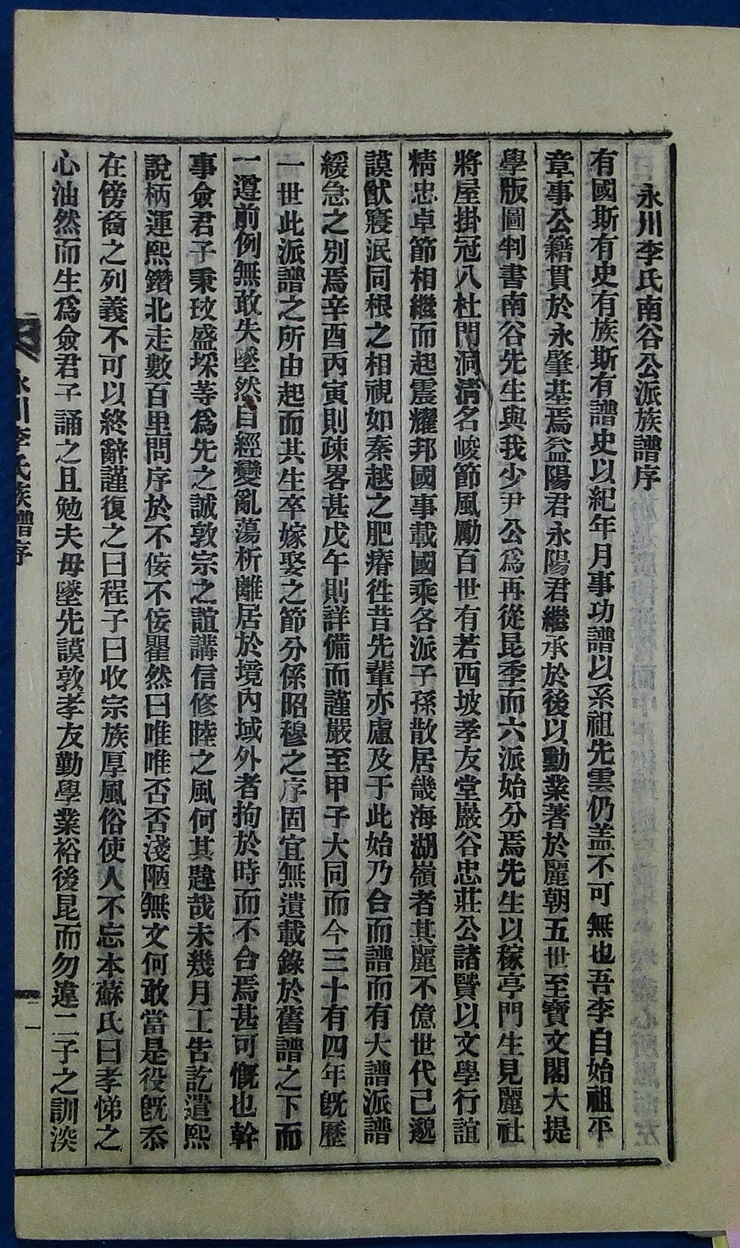 永川李氏南谷公派族譜序
有國斯有史有族斯有譜史以紀年月事功譜以系祖先雲仍盖不可無也吾李自始祖平
章事公籍貫於永肇基焉益陽君永陽君繼承於後以勳業著於麗朝五世至寶文閣大提
學版圖判書南谷先生與我少尹公爲再從昆季而六派始分焉先生以稼亭門生見麗社
將屋掛冠八杜門洞淸名峻節風勵百世有若西坡孝友堂巖谷忠莊公諸賢以文學行誼
精忠卓節相繼而起震耀邦國事載國乘各派子孫散居畿海湖嶺者其麗不億世代已邈
謨猷寢泯同根之相視如秦越之肥瘠徃昔先輩亦慮及于此始乃台而譜而有大譜派譜
緩急之別焉辛酉丙寅則疎畧甚戊午則詳備而謹嚴至甲子大同而今三十有四年旣歷
一世此派譜之所由起而其生卒嫁娶之節分係昭穆之序固宜無遺載錄於舊譜之下而
一遵前例無敢失墜然自經變亂蕩析離居於境內域外者拘於時而不台焉甚可慨也幹
事僉君子秉玟盛埰等爲先之誠敦宗之誼講信修睦之風何其韙哉未幾月工告訖遣熙
說柄運熙鑽北走數百里問序於不侫不侫瞿然曰唯唯否否淺陋無文何敢當是役旣忝
在傍裔之列義不可以終辭謹復之曰程子曰收宗族厚風俗使人不忘本蘇氏曰孝悌之
心油然而生爲僉君子誦之且勉夫毋墜先謨敦孝友勤學業裕後昆而勿違二子之訓淡
永川李氏族譜序